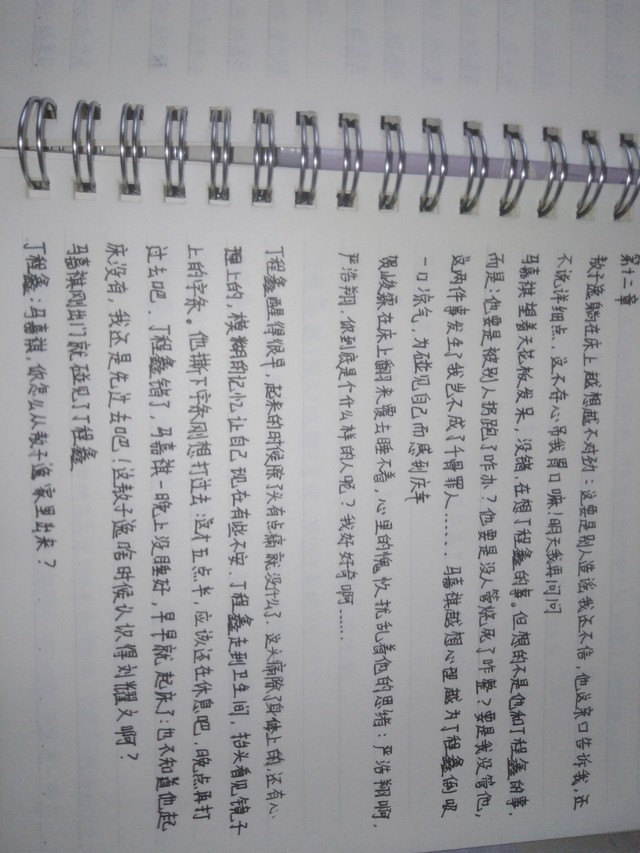 第十二章
敖子逸躺在床上越想越不对劲：这要是别人造谣我还不信，他这亲口告诉我，还
不说详细点，这不存心吊我胃口嘛！明天我再问问
马嘉祺望着天花板发呆，没错，在想丁程鑫的事。但想的不是他和丁程鑫的事，
而是：他要是被别人拐跑了咋办？他要是没人管烧死了咋整？要是我没管他，
这两件事发生了我岂不成了千骨罪人……马嘉祺越想心里越为丁程鑫倒吸
一口凉气，为碰见自己而感到庆幸
贺峻霖在床上翻来覆去睡不着，心里的愧疚扰乱着他的思绪：严浩翔啊，
严浩翔，你到底是个什么样的人呢？我好好奇啊……
丁程鑫醒得很早，起来的时候除了头有点痛就没什么了，这头痛除了身体上的，还有心
理上的，模糊的记忆让自己现在有些不安。丁程鑫走到卫生间，抬头看见镜子
上的字条。他撕下字条刚想打过去：这才五点半，应该还在休息吧，晚点再打
过去吧。丁程鑫错了，马嘉祺一晚上没睡好，早早就起床了：也不知道他起
床没有，我还是先过去吧！这敖子逸啥时候认识得刘耀文啊？
马嘉祺刚出门就碰见了丁程鑫
丁程鑫：马嘉祺，你怎么从敖子逸家里出来？